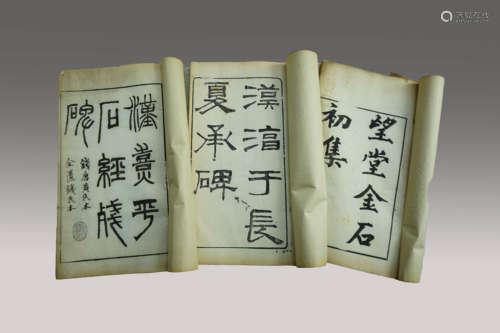 望堂金石
初集
漢淳于長
夏承碑
漢熹平
石經殘
碑
錢唐黃氏本
金匱錢氏本